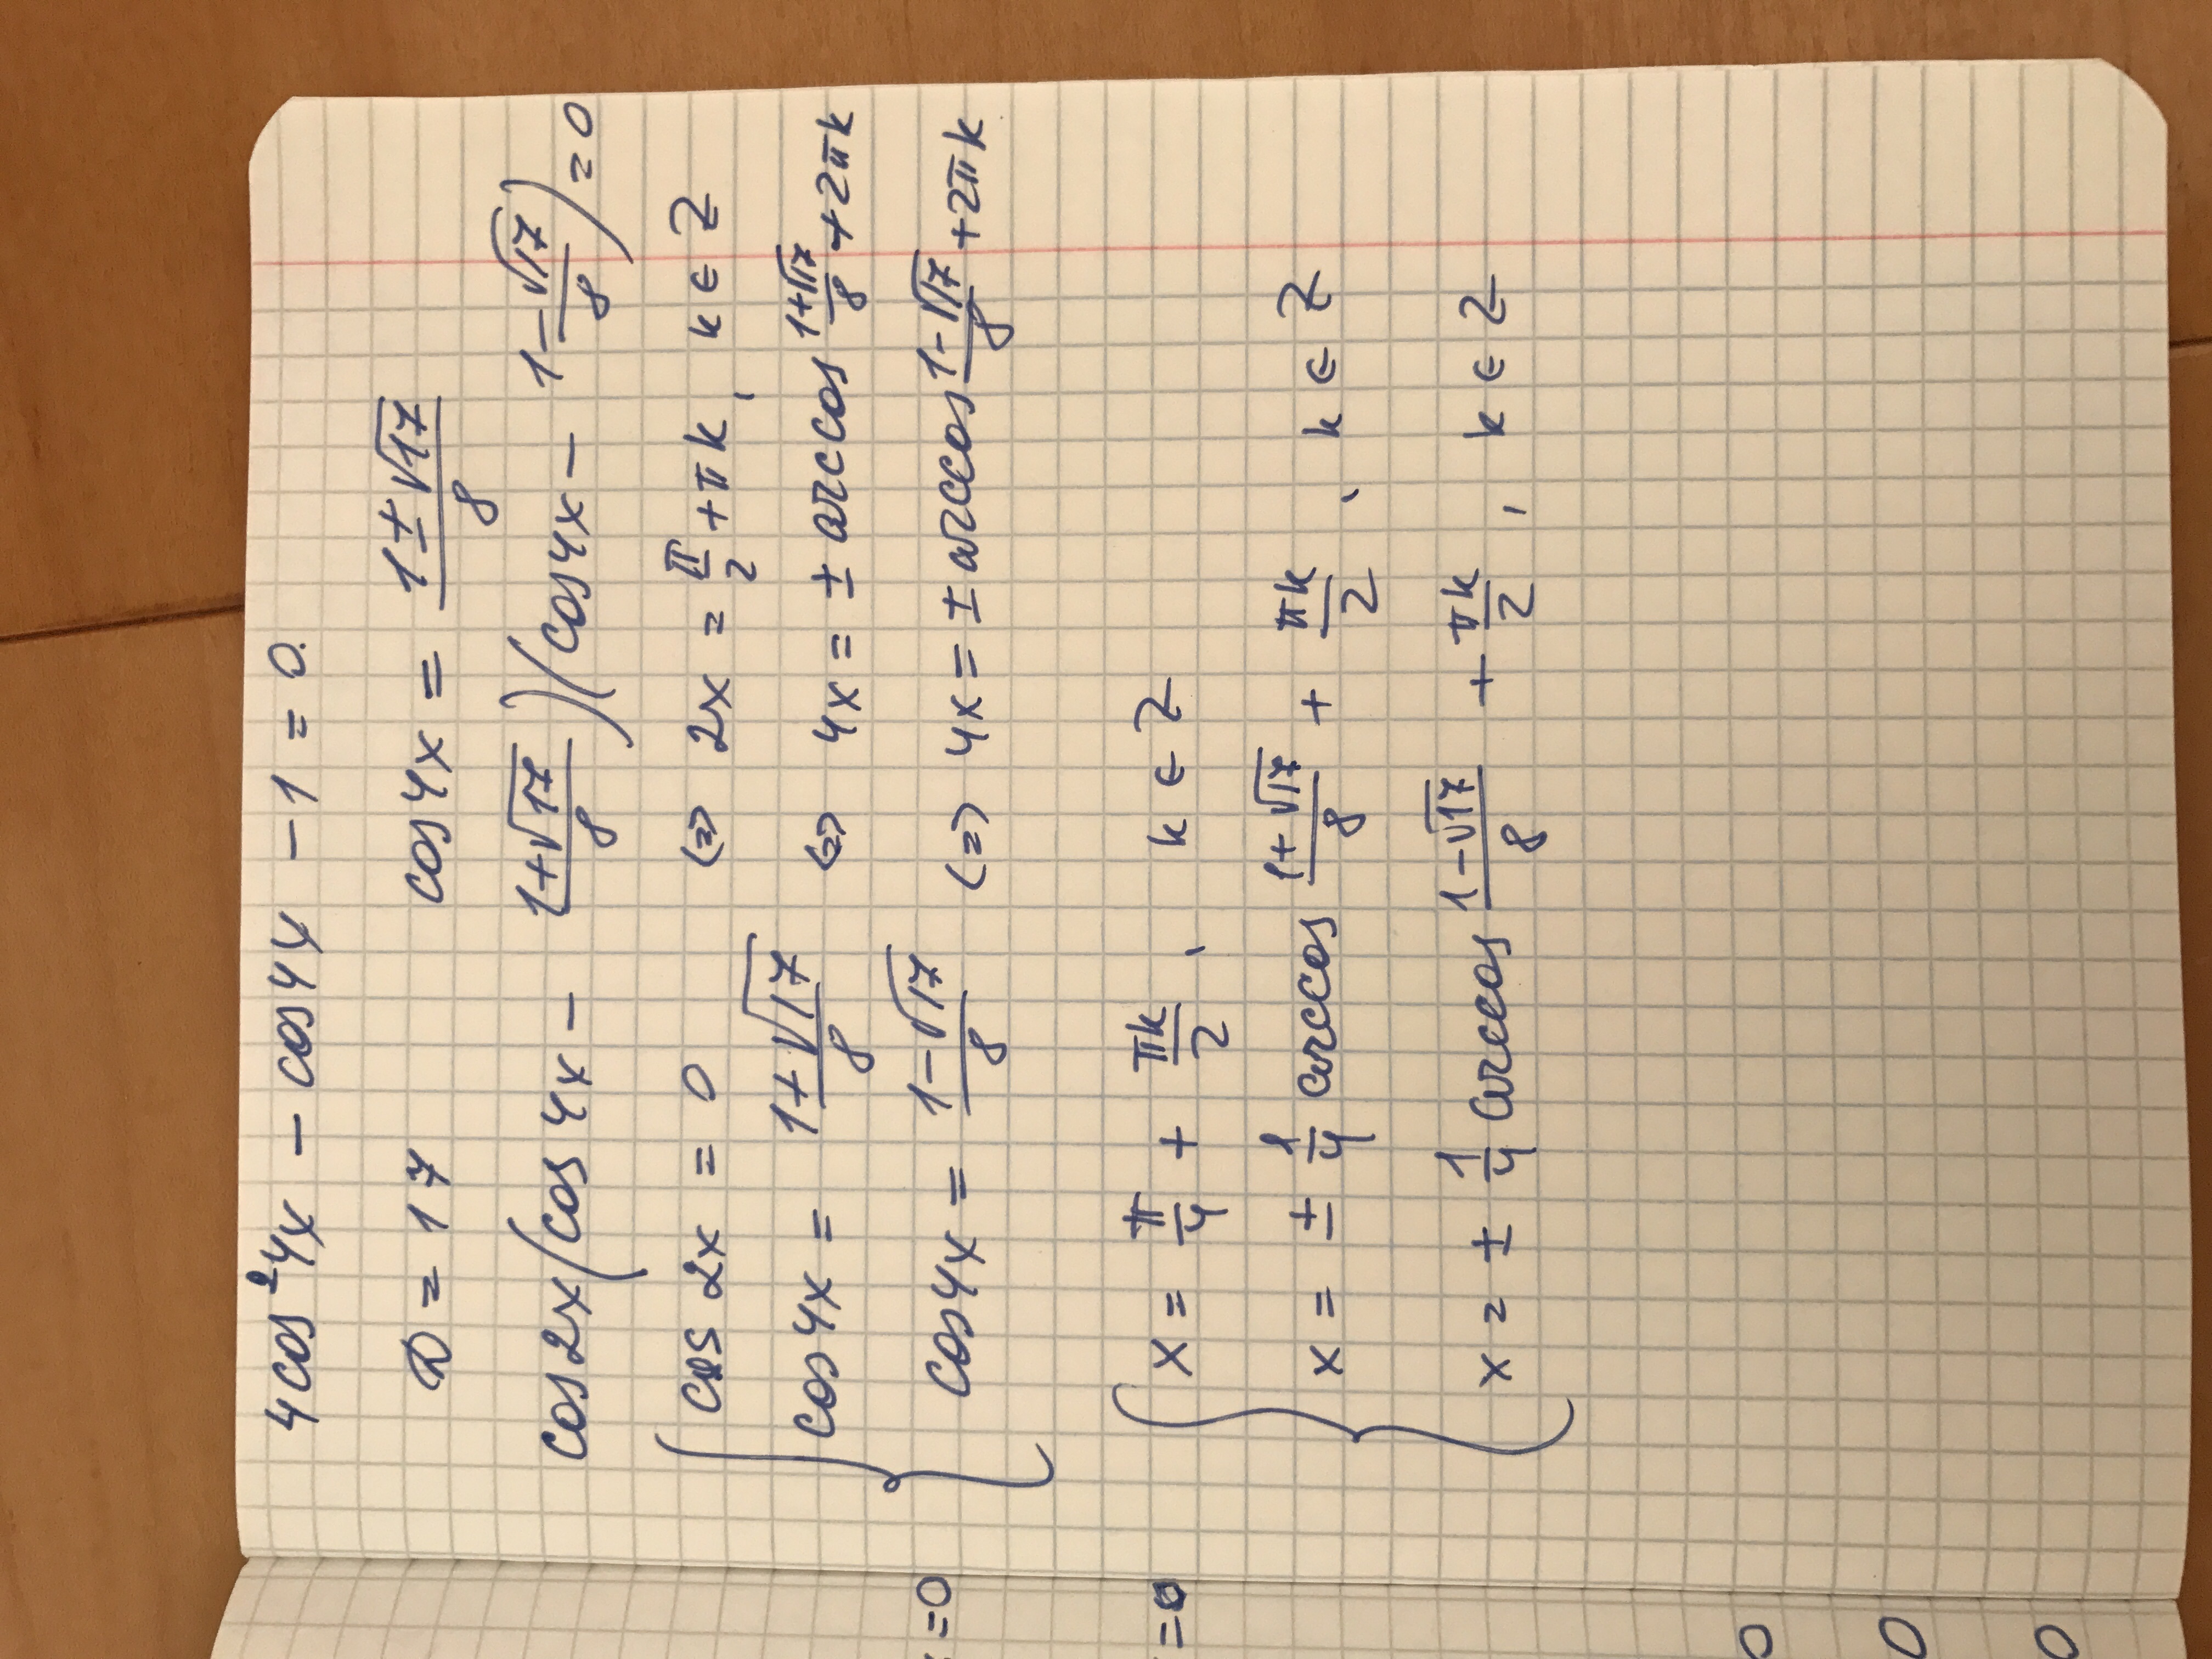 4cos²4x - cos4x - 1 = 0.
D = 17 cos4x = (1±√17)/8
cos2x(cos4x - (1+√17)/8)(cos4x - (1-√17)/8) = 0
cos 2x = 0 (=) 2x = π/2 + πk, k ∈ Z
cos4x = (1+√17)/8 (=) 4x = ± arccos (1+√17)/8 + 2πk
cos4x = (1-√17)/8 (=) 4x = ± arccos (1-√17)/8 + 2πk
x = π/4 + πk/2, k ∈ Z
x = ± 1/4 arccos (1+√17)/8 + πk/2, k ∈ Z
x = ± 1/4 arccos (1-√17)/8 + πk/2, k ∈ Z
=0
=0
0
0
0